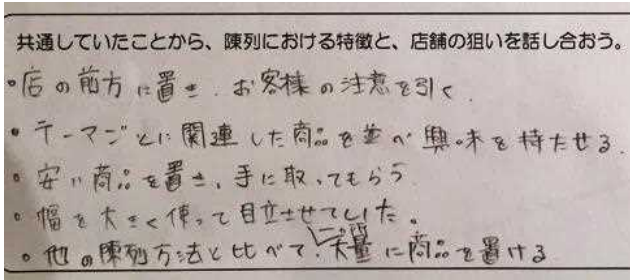 共通していたことから、陳列における特徴と、店舗の狙いを話し合おう。
・店の前方に置き、お客様の注意を引く
・テーマごとに関連した商品を並べ興味を持たせる。
・安い商品を置き、手に取ってもらう
・幅を大きく使って目立させていた。
・他の陳列方法と比べて、大量に商品を置ける